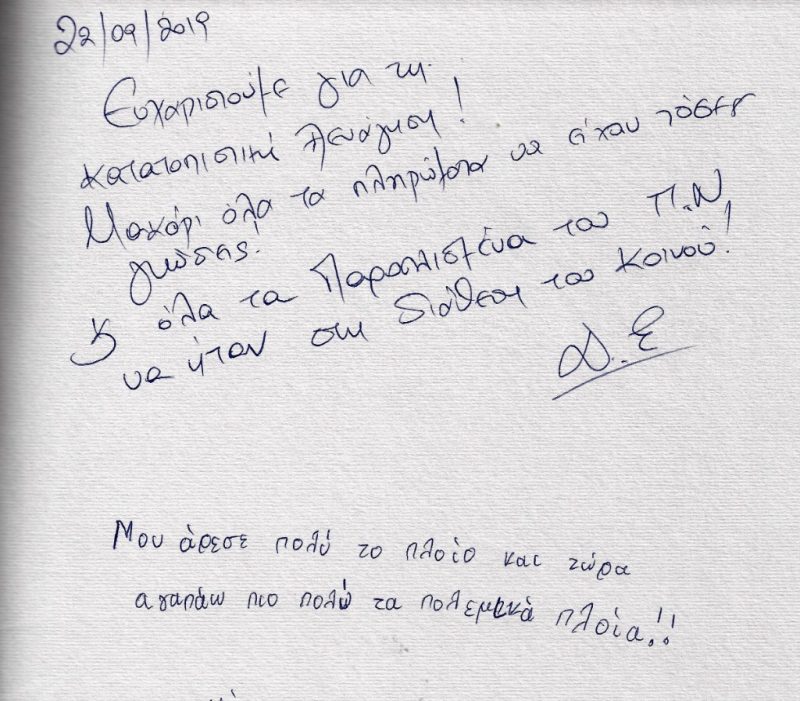 22/09/2019
Ευχαριστούμε για τη
κατατοπιστική ξενάγηση!
Μακάρι όλα τα πληρώματα να είχαν τόσες
γνώσεις.
& όλα τα Παροπλισμένα του Π.Ν
να ήταν στη διάθεση του Κοινού!
Δ.Ε
Μου άρεσε πολύ το πλοίο και τώρα
αγαπάω πιο πολύ τα πολεμικά πλοία!!